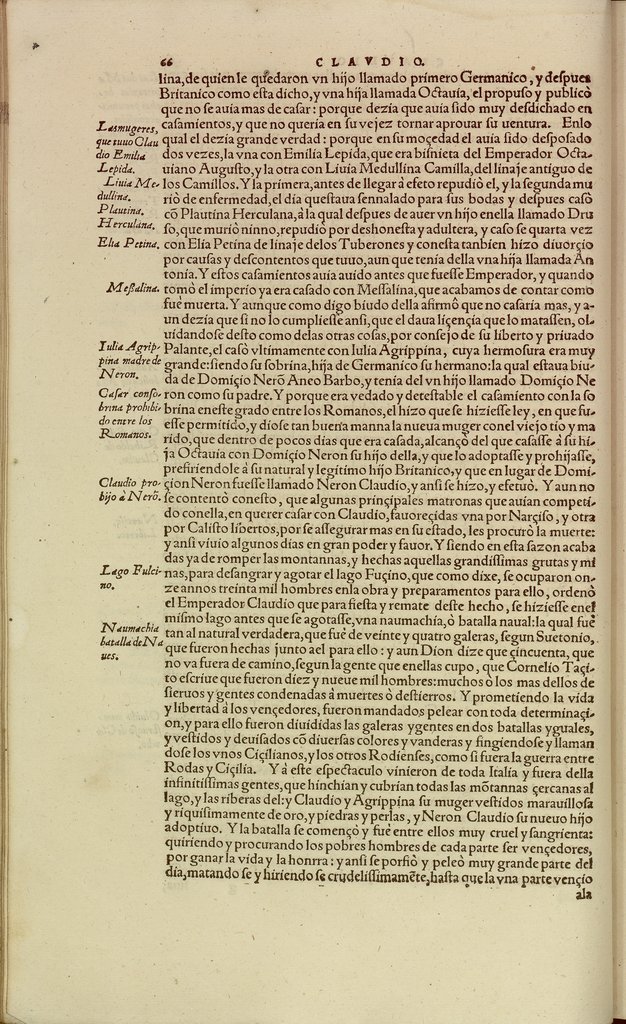 66
CLAVDIO.
lina, de quien le quedaron vn hijo llamado primero Germanico, y despues
Britanico como esta dicho, y vna hija llamada Octauia, el propuso y publicò
que no se auia mas de casar: porque dezia que auia sido muy desdichado en
casamientos, y que no queria en su vejez tornar aprouar su uentura. Enlo
qual el dezia grande verdad: porque en su moçedad el auia sido desposado
dos vezes, la vna con Emilia Lepida, que era bisnieta del Emperador Octa-
uiano Augusto, y la otra con Liuia Medullina Camilla, del linaje antiguo de
los Camillos. Y la primera, antes de llegar à efeto repudiò el, y la segunda mu
riò de enfermedad, el dia questaua sennalado para sus bodas y despues casò
cõ Plautina Herculana, à la qual despues de auer vn hijo enella llamado Dru
so, que muriò ninno, repudiò por deshonesta y adultera, y caso se quarta vez
con Elia Petina de linaje delos Tuberones y conesta tanbien hizo diuorçio
por causas y descontentos que tuuo, aun que tenia della vna hija llamada An
tonia. Y estos casamientos auia auido antes que fuesse Emperador, y quando
tomò el imperio ya era casado con Messalina, que acabamos de contar como
fuè muerta. Y aunque como digo biudo della afirmô que no casaria mas, y a-
un dezia que si no lo cumplieste ansi, que el daua liçençia que lo matassen, ol-
uidandose desto como delas otras cosas, por consejo de su liberto y priuado
Palante, el casò vltimamente con Iulia Agrippina, cuya hermosura era muy
grande: siendo su sobrina, hija de Germanico su hermano: la qual estaua biu-
da de Domiçio Nerõ Aneo Barbo, y tenia del vn hijo llamado Domiçio Ne
ron como su padre. Y porque era vedado y detestable el casamiento con la so
brina eneste grado entre los Romanos, el hizo que se hiziesse ley, en que fu-
esse permitido, y diose tan buena manna la nueua muger conel viejo tio y ma
rido, que dentro de pocos dias que era casada, alcançò del que casasse à su hi-
ja Octauia con Domiçio Neron su hijo della, y que lo adoptasse y prohijasse,
prefiriendole à su natural y legitimo hijo Britanico, y que en lugar de Domi-
çion Neron fuesse llamado Neron Claudio, y ansi se hizo, y efetuò. Y aun no
se contentò conesto, que algunas prinçipales matronas que auian competi-
do conella, en querer casar con Claudio, fauoreçidas vna por Narçiso, y otra
por Calisto libertos, por se assegurar mas en su estado, les procurò la muerte:
y ansi viuio algunos dias en gran poder y fauor. Y siendo en esta sazon acaba
das ya de romper las montannas, y hechas aquellas grandissimas grutas y mi
nas, para desangrar y agotar el lago Fuçino, que como dixe, se ocuparon on-
ze annos treinta mil hombres enla obra y preparamentos para ello, ordenò
el Emperador Claudio que para fiesta y remate deste hecho, se hiziesse enel
mismo lago antes que se agotasse, vna naumachia, ò batalla naual: la qual fuè
tan al natural verdadera, que fuè de veinte y quatro galeras, segun Suetonio,
que fueron hechas junto ael para ello: y aun Dion dize que çincuenta, que
no va fuera de camino, segun la gente que enellas cupo, que Cornelio Taçi-
to escriue que fueron diez y nueue mil hombres: muchos ò los mas dellos de
sieruos y gentes condenadas à muertes ò destierros. Y prometiendo la vida
y libertad à los vençedores, fueron mandados pelear con toda determinaçi-
on, y para ello fueron diuididas las galeras ygentes en dos batallas yguales,
y vestidos y deuisados cõ diuersas colores y vanderas y fingiendose y llaman
dose los vnos Ciçilianos, y los otros Rodienses, como si fuera la guerra entre
Rodas y Ciçilia. Y à este espectaculo vinieron de toda Italia y fuera della
infinitissimas gentes, que hinchian y cubrian todas las mõtannas çercanas al
lago, y las riberas del: y Claudio y Agrippina su muger vestidos marauillosa
y riquissimamente de oro, y piedras y perlas, y Neron Claudio su nueuo hijo
adoptiuo. Y la batalla se començò y fuè entre ellos muy cruel y sangrienta:
quiriendo y procurando los pobres hombres de cada parte ser vençedores,
por ganar la vida y la honrra: y ansi se porfiò y peleò muy grande parte del
dia, matando se y hiriendo se crudelissimamẽte, hasta que la vna parte vençio
ala
Las mugeres,
que tuuo Clau
dio Emilia
Lepida.
Liuia Me-
dullina.
Plautina.
Herculana.
Elia Petina.
Meßalina.
Iulia Agrip-
pina madre de
Neron.
Casar conso-
brina prohibi-
do entre los
Romanos.
Claudio pro-
hijo à Nerõ.
Lago Fulci-
no.
Naumachia
batalla de Na
ues.